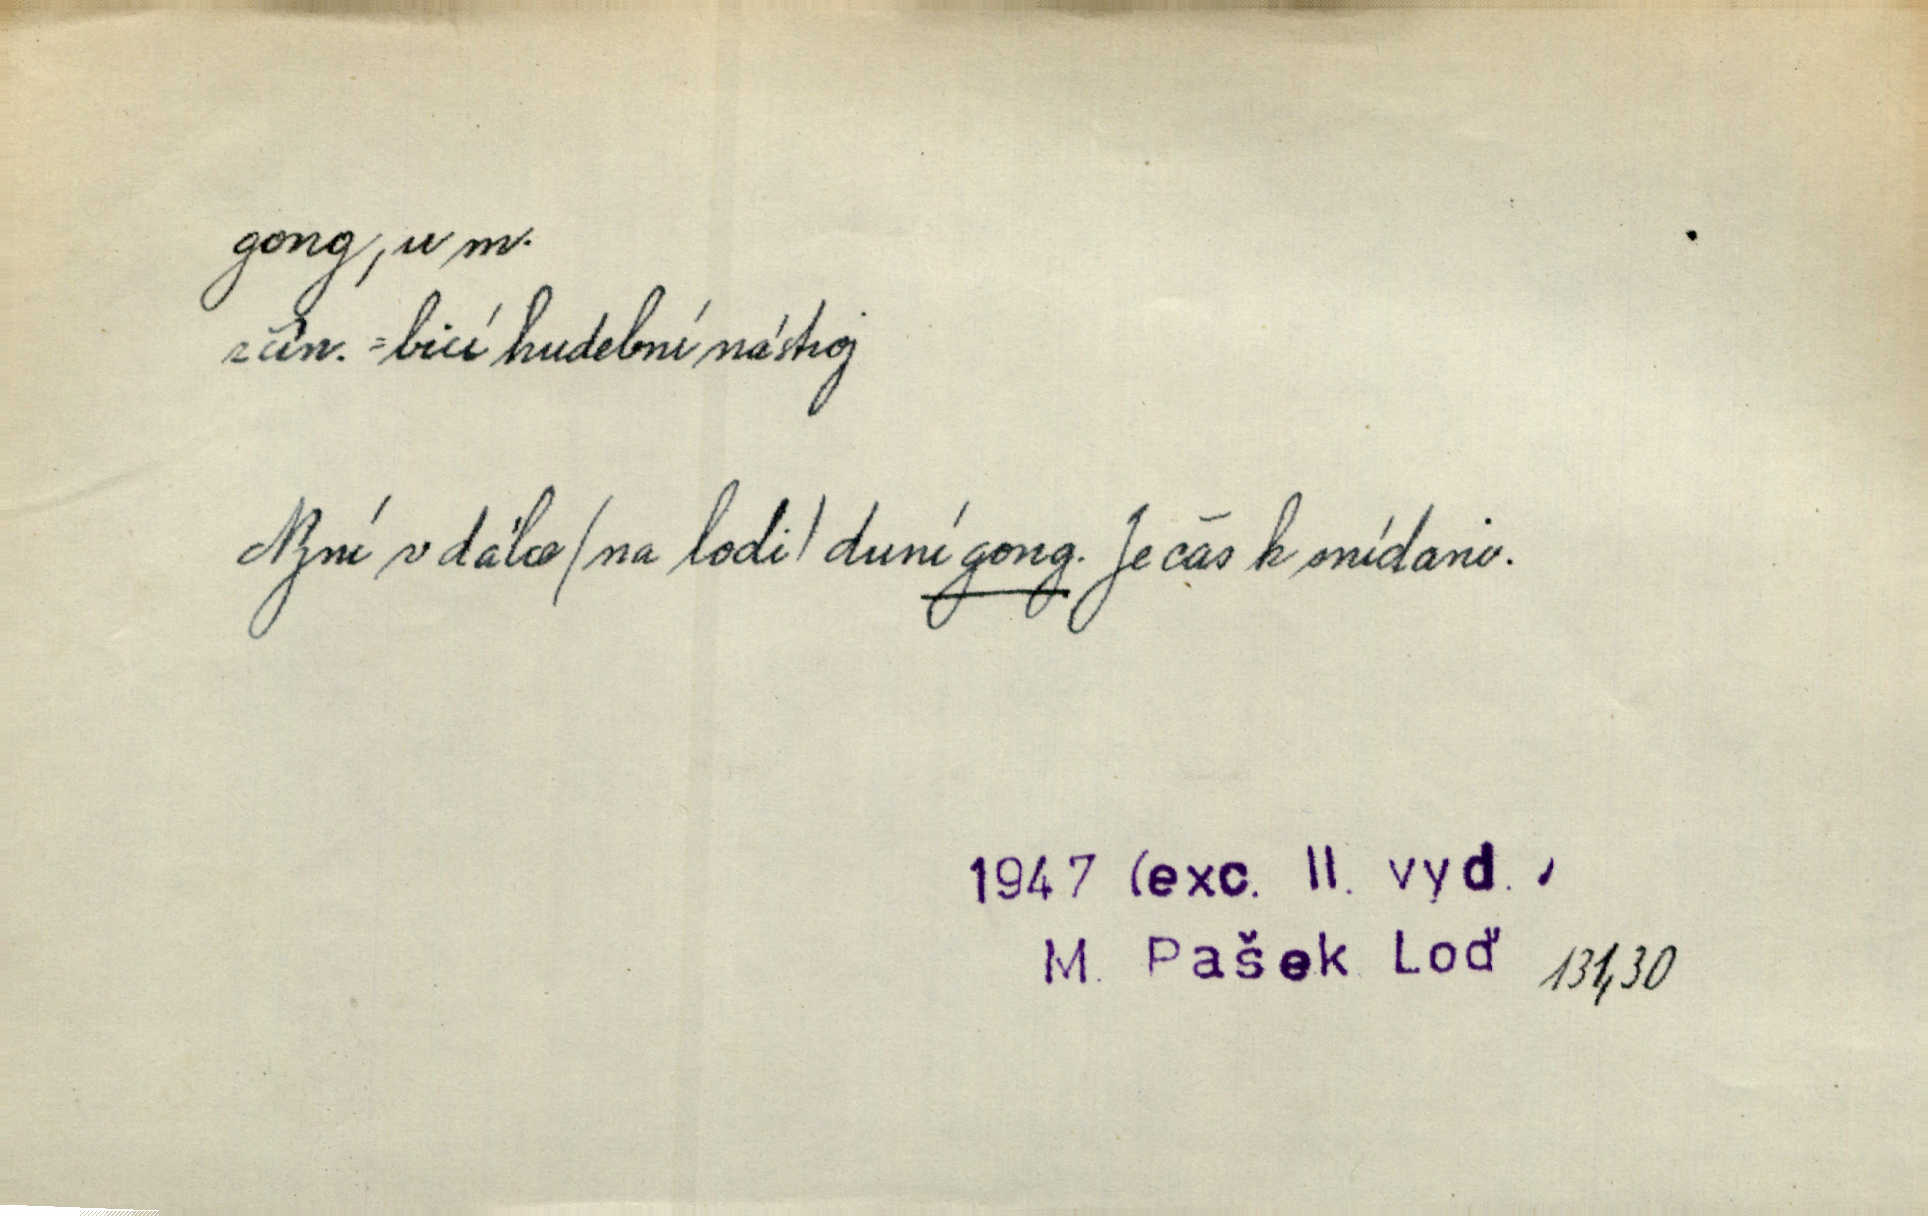 gong, u m.
z čín. = bicí hudební nástroj
Nyní v dálce (na lodi) duní gong. Je čas k snídani.
1947 (exc. II. vyd.)
M. Pašek Loď 131,30